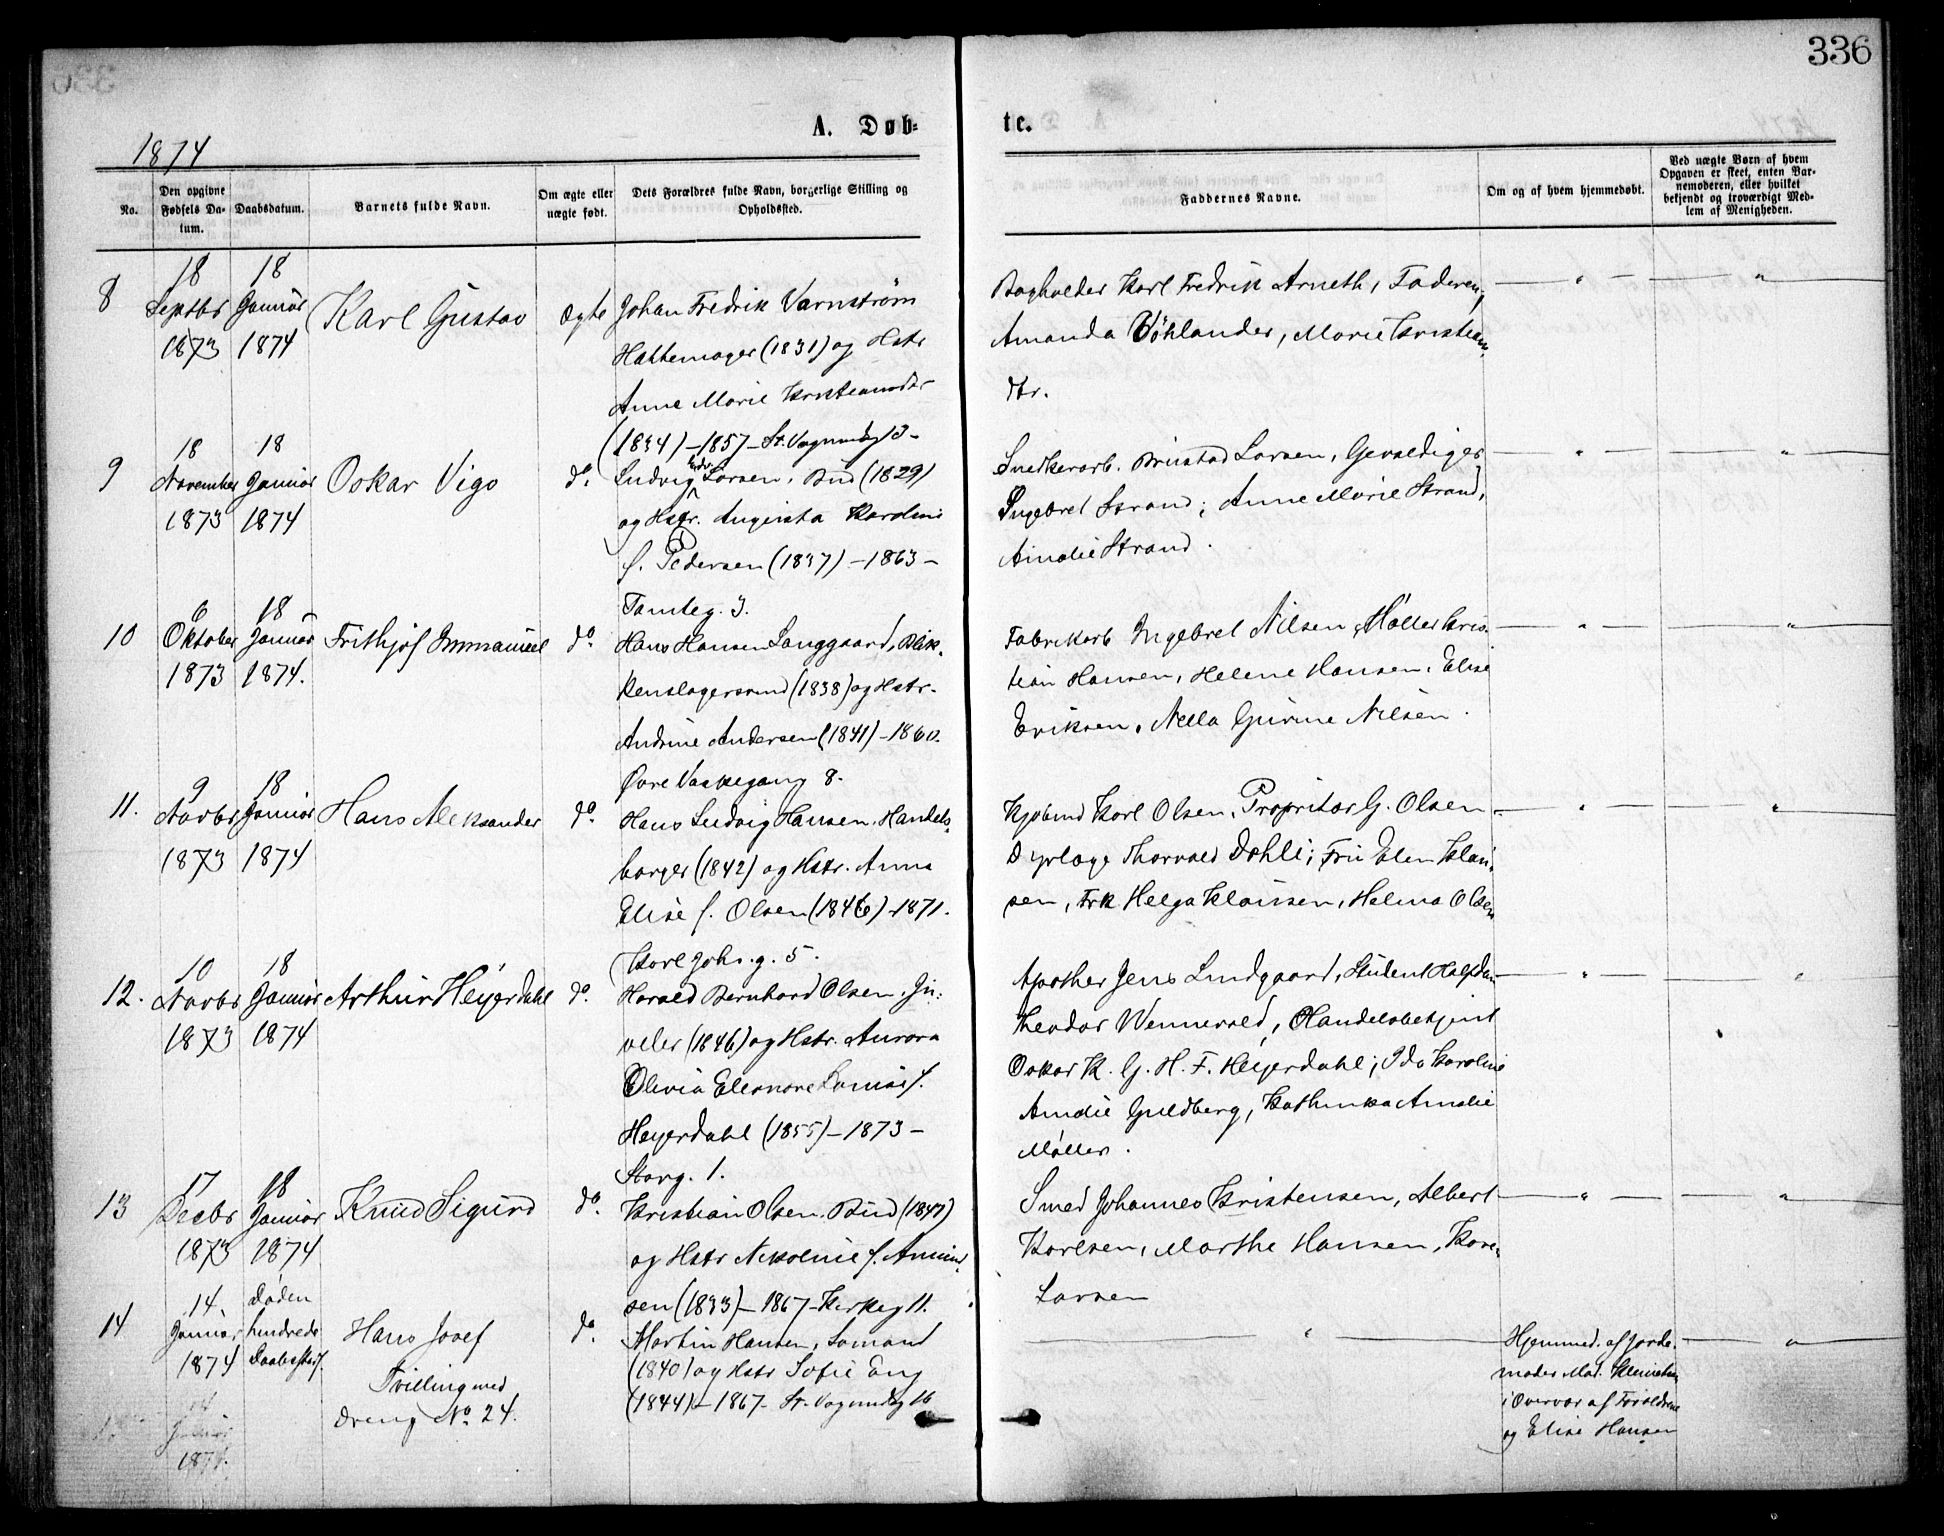 336
A. Døb-
te.
1874
No.
Den opgivne Fødsels Da-tum.
Daabsdatum.
Barnets fulde Navn.
Om ægte eller uægte født.
Dets Forældres fulde Navn, borgerlige Stilling og Opholdssted.
Faddernes Navne.
Om og af hvem hjemmedøbt.
Ved uægte Børn af hvem Opgaven er skeet, enten Bar-nemoderen, eller hvilket bekjendt og troværdigt Med-lem af Menigheden.
8
18 Septbr 1873
18 Januar 1874
Karl Gustav
Ægte
Johan Fredrik Varnstrøm
Hattemager (1831) og Hstr
Anne Marie Kristiansdtr
(1834) - 1857 - St. Vognmdg 13 -
Bogholder Karl Fredrik Arneth, Faderen,
Amanda Vöhlander, Marie Kristians
dtr.
9
18 November 1873
18 Januar 1874
Oskar Vigo
do.
Ludvig Larsen, Bud (1829)
og Hstr. Augusta Karoline
f. Pedersen (1837) - 1863 -
Tomteg. 3.
Snedkerarb. Larsen, Gevaldiger
Ingebret Strand, Anne Marie Strand,
Amalie Strand.
10
6 Oktober 1873
18 Januar 1874.
Frithjof Immanuel
do.
Hans Hansen Langgaard, Blik-
kenslagersvend (1838) og Hstr.
Andrine Andersen (1841) - 1860.
Øvre Vaskegang 8.
Fabrikarb Ingebret Nilsen, Møller Kris-
tian Hansen, Helene Hansen, Elise
Eriksen, Nella Gurine Nilsen.
11.
9 Novbr 1873
18 Januar 1874
Hans Aleksander
do.
Hans Ludvig Hansen, Handels-
borger (1842) og Hstr. Anna
Elise f. Olsen (1846) - 1871.
Karl Johs. g. 5.
Kjøbmd Karl Olsen, Propritær G. Olsen
Dyrlæge Thorvald Dahll; Fru Elen Klau-
sen, Frk Helga Klausen, Halma Olsen
12.
10 Novbr 1873
18 Januar 1874
Arthur Heyerdahl
do.
Harald Bernhard Olsen, Ju-
veler (1846) og Hstr. Aurora
Olivia Eleonore Lovise f.
Heyerdahl (1855) - 1873 -
Storg. 1.
Apother Jens Lundgaard, Student Halfdan
Teodor Wennevold, Handelsbetjent
Oskar K. G. H. F. Heyerdahl; Ida Karoline
Amalie Guldberg, Kathinka Amalie
Møller.
13
17 Decbr 1873
18 Januar 1874
Knud Sigurd
do.
Kristian Olsen, Bud (1847)
og Hstr Nikoline f. Amund-
sen (1833) - 1867 - Kirkeg 11.
Smed Johannes Kristensen, Albert
Karlsen, Marthe Hansen, Kare-
Larsen
14
14. Januar 1874
Døden hindrede Daabsstadf.
Hans Josef
Tvilling med
dreng No. 24.
do.
Martin Hansen, Sømand
(1840) og Hstr Sofie Eng
(1844) - 1867 - St. Vognmdg 16
Hjemmed. af Jorde-
moder Mad.
i Overvær af Forældrene
og Elise Hansen
14
Januar
1874.